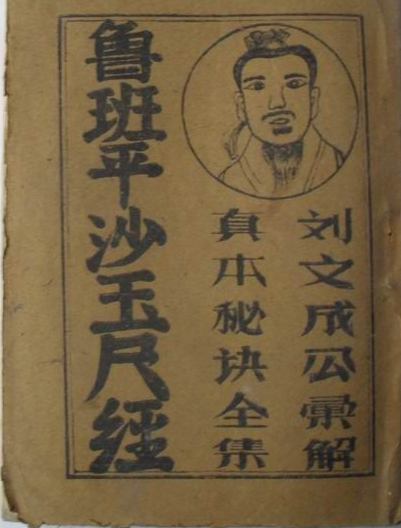 刘文成公彙解
真本秘诀全集
鲁班平沙玉尺經